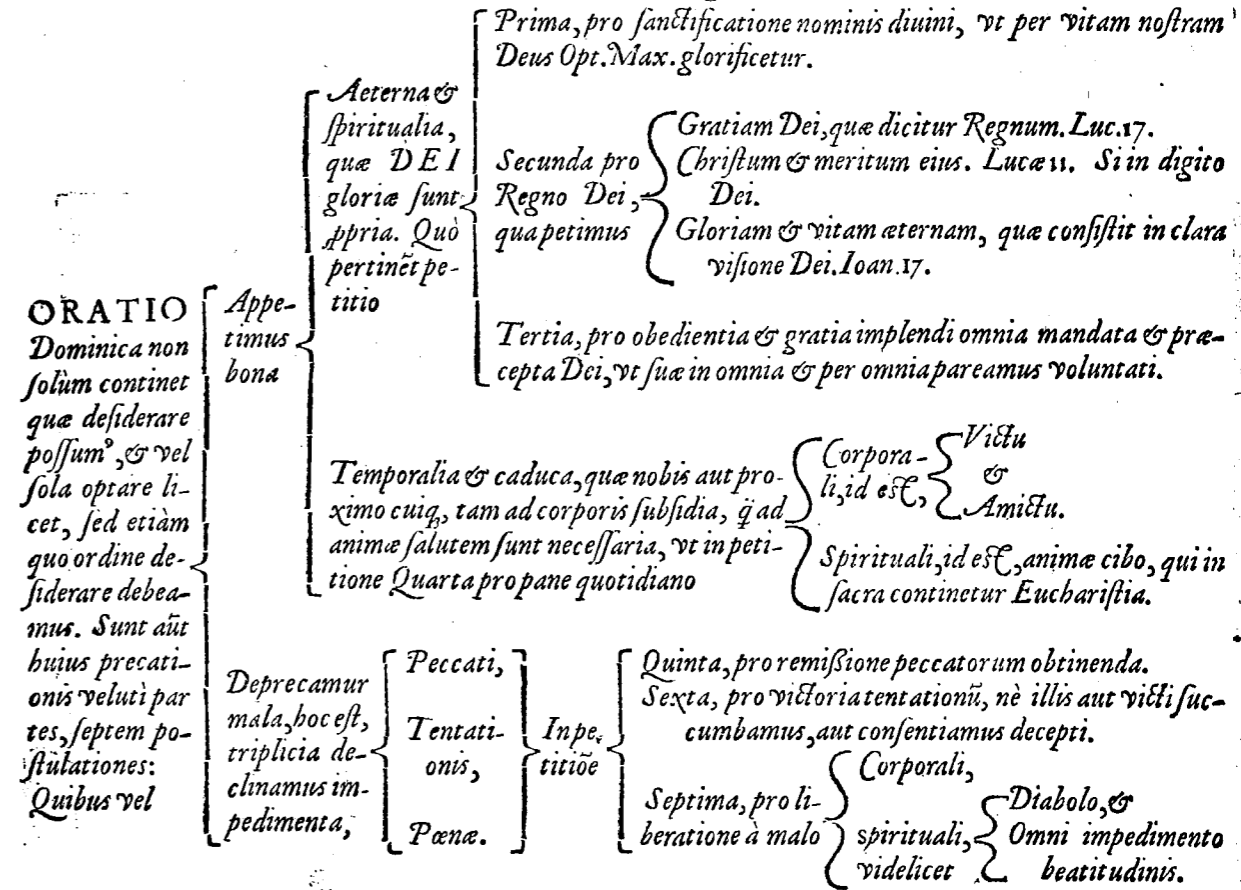 ORATIO
Dominica non
ſolùm continet
quæ deſiderare
poſſumꝰ, & vel
ſola optare li-
cet, ſed etiàm
quo ordine de-
ſiderare debea-
mus. Sunt aũt
huius precati-
onis veluti par
tes, ſeptem po-
ſtulationes:
Quibus vel
Appe-
timus
bona
Aeterna &
ſpiritualia,
quæ DEI
gloriæ ſunt
ꝓpria. Quò
pertinẽt pe-
titio
Prima, pro ſanctificatione nominis diuini, vt per vitam noſtram
Deus Opt. Max. glorificetur.
Secunda pro
Regno Dei,
qua petimus
Gratiam Dei, quæ dicitur Regnum. Luc. 17.
Chriſtum & meritum eius. Lucæ 11. Si in digito
Dei.
Gloriam & vitam æternam, quæ conſiſtit in clara
viſione Dei. Ioan. 17.
Tertia, pro obedientia & gratia implendi omnia mandata & præ-
cepta Dei, vt ſuæ in omnia & per omnia pareamus voluntati.
Temporalia & caduca, quæ nobis aut pro-
ximo cuiq;, tam ad corporis ſubſidia, q̃ ad
animæ ſalutem ſunt neceſſaria, vt in peti-
tione Quarta pro pane quotidiano
Corpora-
li, id eſt,
Victu
&
Amictu.
Spirituali, id eſt, animæ cibo, qui in
ſacra continetur Euchariſtia.
Deprecamur
mala, hoc eſt,
triplicia de-
clinamus im-
pedimenta,
Peccati,
Tentati-
onis,
Pœnæ.
In pe-
titiõe
Quinta, pro remißione peccatorum obtinenda.
Sexta, pro victoria tentationũ, nè illis aut victi ſuc-
cumbamus, aut conſentiamus decepti.
Septima, pro li-
beratione à malo
Corporali,
spirituali,
videlicet
Diabolo, &
Omni impedimento
beatitudinis.